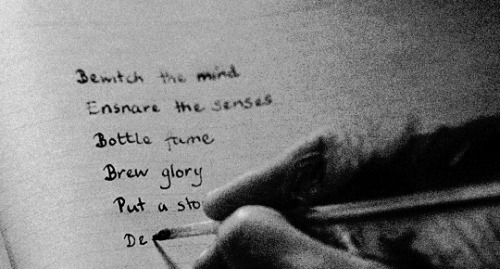 Bewitch the mind
Ensnare the senses
Bottle fame
Brew glory
Put a sto
De